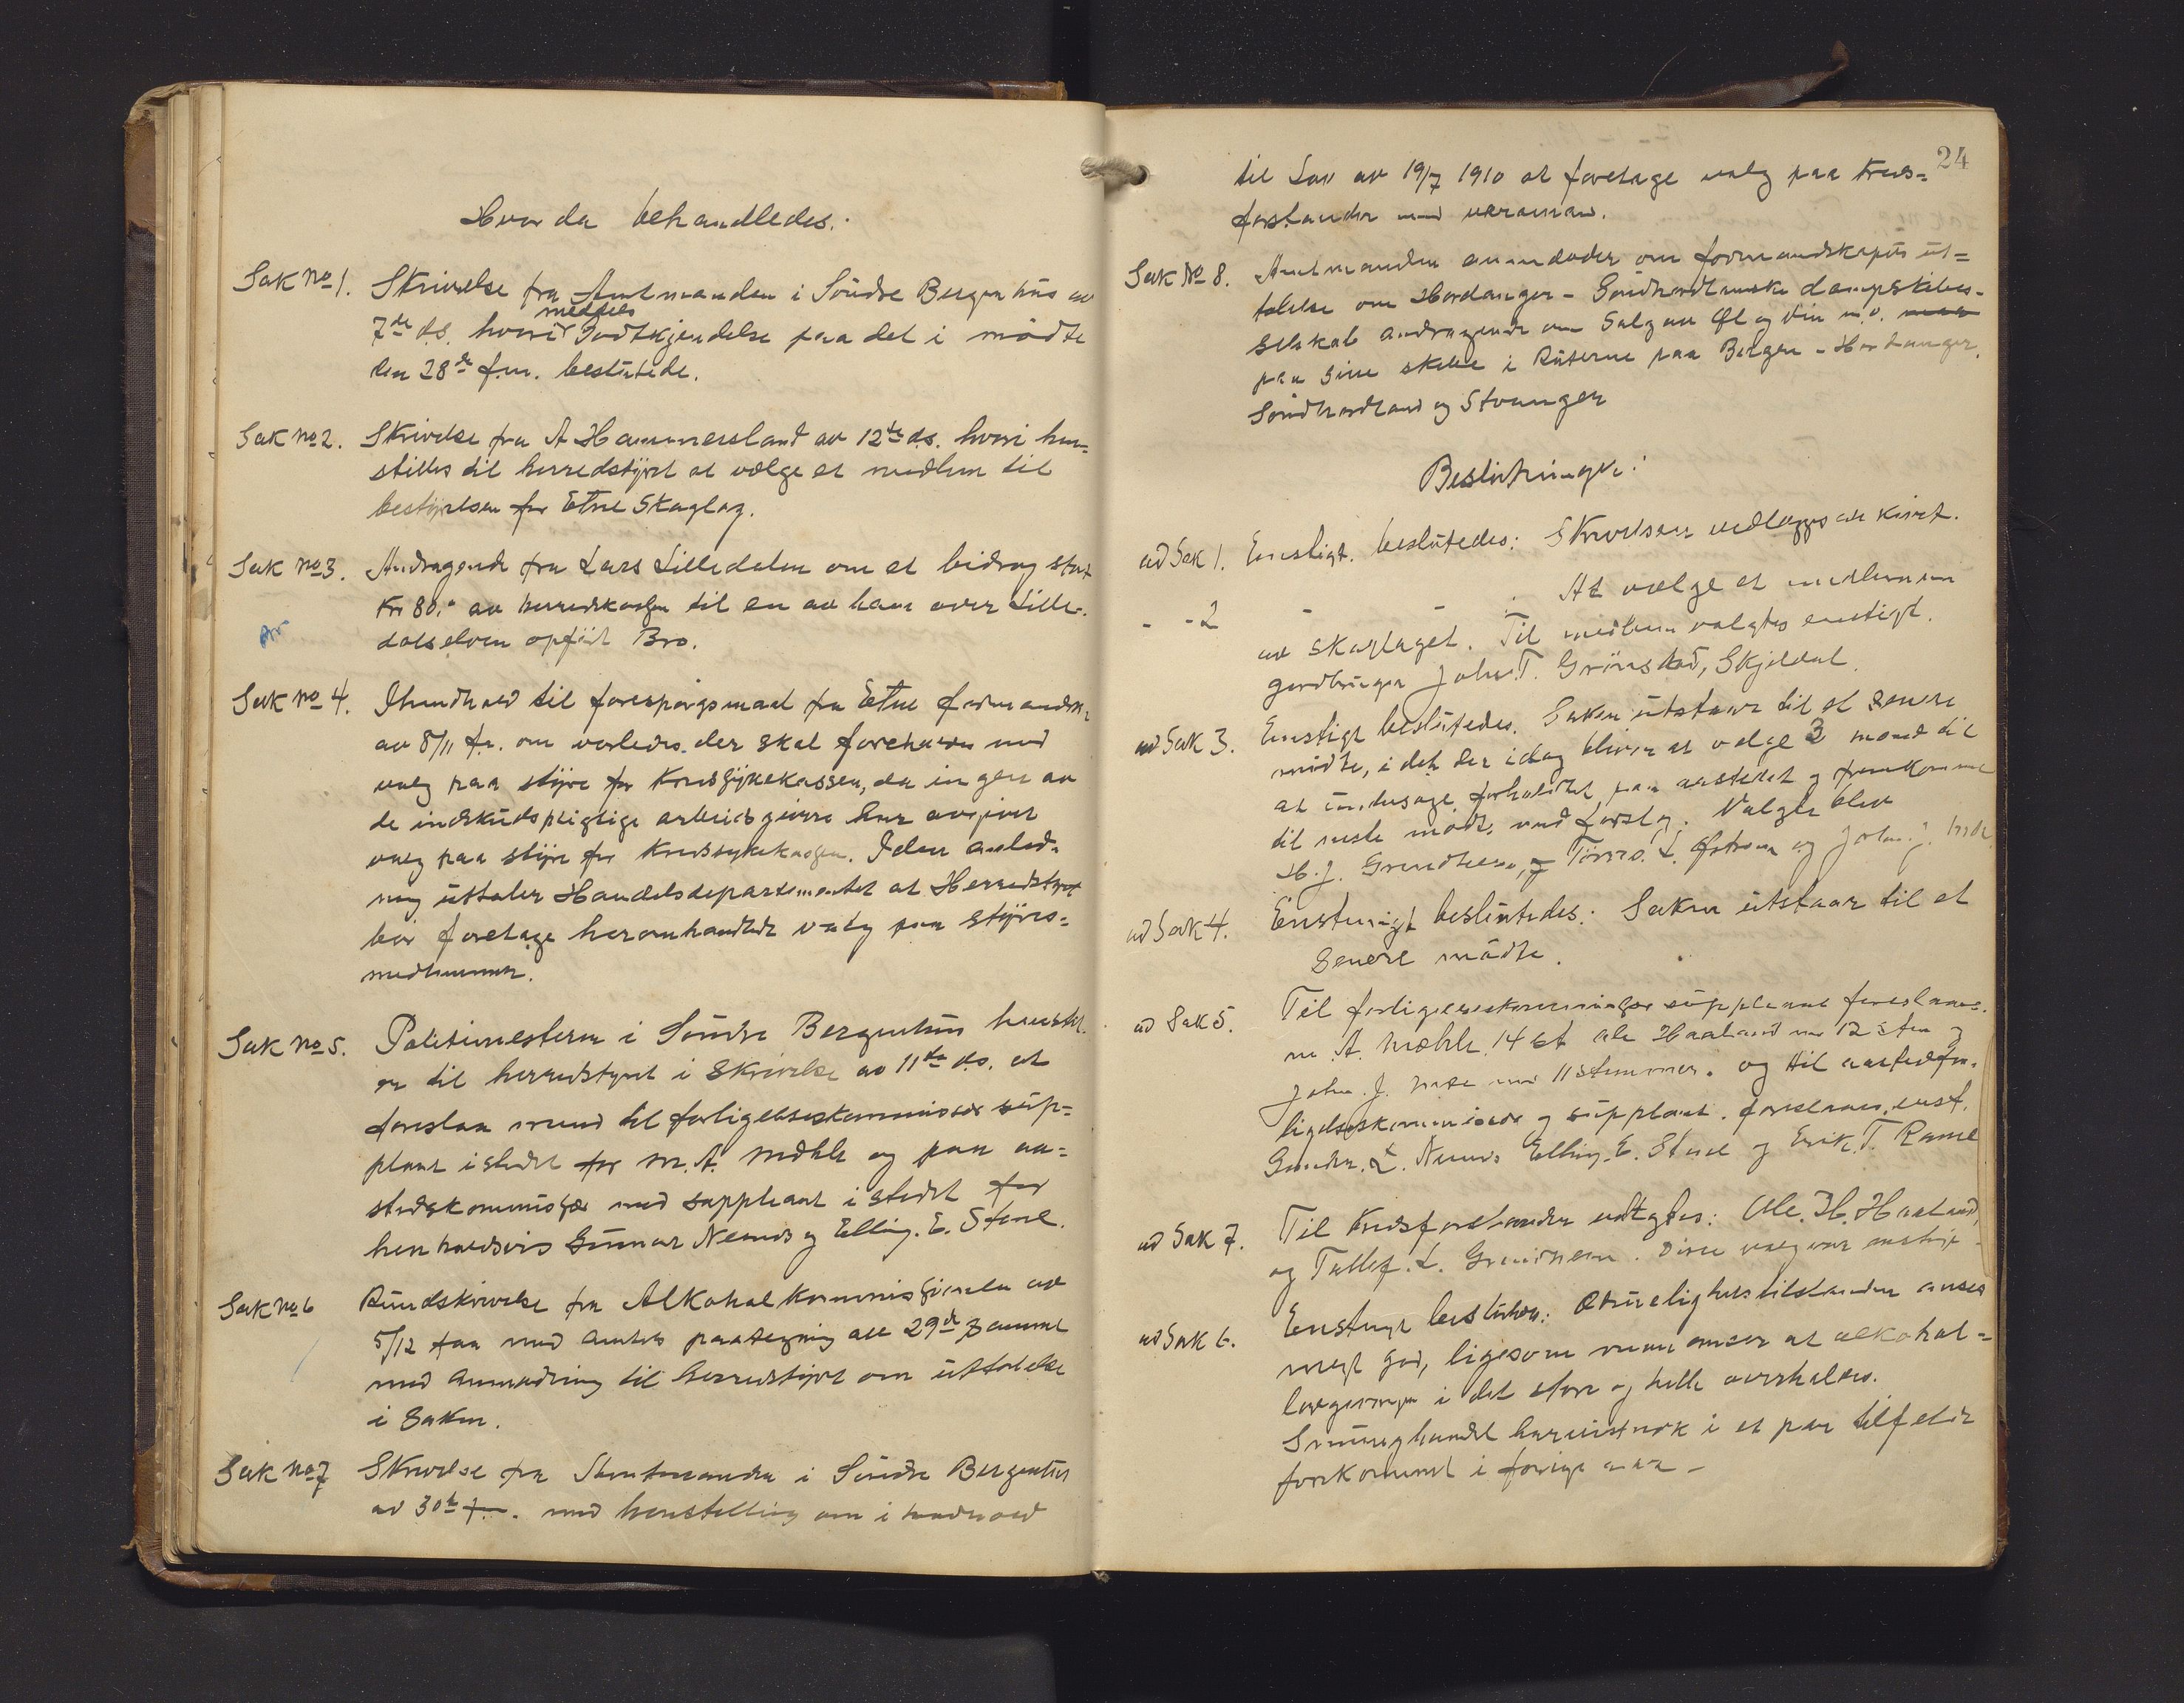 Hvor da behandledes:
Sak No 1. Skrivelse fra Amtmanden i Söndre Bergenhus av
meddeles
7de d.s. hvori Godtkjendelse paa det i mödte
den 28de f.m. beslutede.
Sak No 2. Skrivelse fra A Hammersland av 12te ds. hvori hen-
stilles til herredstyret at vælge et medlem til
bestyrelsen for Etne Skoglag.
Sak No 3. Andragende fra Lars Lilledalen om et bidrag stort
Kr 80,- av herredskassen til en av ham over Lille-
dalselven opfört Bro.
Sak No 4. I henhold til forespörgsmaal fra Etne formandsk.
av 8/11 f.a. om vorledes der skal forehaldes med
valg paa styre for Kredssykekassen, da ingen av
de indskudspligtige arbeidsgivere har avgivet
valg paa styre for Kredssykekassen. I den anled-
ning uttaler Handelsdepartementet at Herredstyret
bör foretage heromhandlede valg paa styres-
medlemmer.
Sak No 5. Politimesteren i Söndre Bergenhus henstil-
er til herredstyret i Skrivelse av 11te ds. at
foreslaa mænd til forligelseskommissær sup-
pleant istedet for M. A. Mæhle og paa aa-
stedskommissær med suppleant istedet for
henholdsvis Gunnar Nernes og Elling. E. Stene.
Sak No 6 Rundskrivelse fra Alkoholkommissionen av
5/12 f.aa med amtets paategning av 29de samme
med Anmodning til herredstyret om uttalelse
i Saken.
Sak No 7 Skrivelse fra Amtmanden i Söndre Bergenhus
av 30te f. med henstilling om i henhold
24
til Lov av 19/7 1910 at foretage valg paa Kreds-
forstander med varamand.
Sak No 8. Amtmanden anmoder om formandskapets ut-
talelse om Hardanger - Söndhordlandske dampskibs-
selskab andragende om Salg av Öl og Vin m.v.
paa sine skibe i Ruterne paa Bergen - Hardanger,
Söndhordland og Stavanger
Beslutninger:
ad Sak 1. Enstigt. beslutedes: Skrivelsen vedlægges arkivet.
- - 2 - - . At vælge et medlem
av skoglaget. Til medlem valgtes enstigt.
gardbruger Johs. T. Grönstad, Skjeldal.
ad Sak 3. Enstigt beslutedes. Saken utstaar til et senere
mödte, i det der idag bliver at vælge 3 mænd til
at undersöge forholdet paa aastedet og fremkomme
til neste mödte med forslag. Valgte blev
H. J. Grindheim, Törres. L. Östrem og Johs. J.
ad Sak 4. Enstemigt beslutedes: Saken utstaar til et
senere mödte.
ad Sak 5. Til forligelseskommissær suppleant foreslaaes.
M. A. Mæhle. 14 st Ole Haaland med 12 stem og
Johs. J. med 11 stemmer. og til aastedsfor-
ligelseskommissær og suppleant. foreslaaes. enst.
Gunder. L. Nernes Elling. E. Stene og Erik. T. Rame
ad Sak 7. Til Kredsforstander valgtes: Ole. H. Haaland,
og Tollef. L. Grindheim. Disse valg var enstige.
ad Sak 6. Enstigt besluttes: Ædruelighetstilstanden anses
meget god, ligesom man anser at alkohol-
lovgivningen i det store og hele overholdes.
Smughandel har vistnok i et par tilfelde
forekommet i forrige aar -